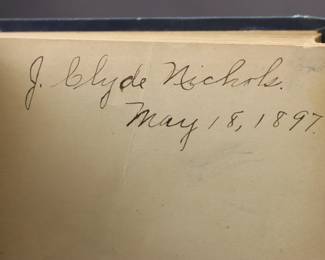 J. Clyde Nichols.
May 18, 1897.